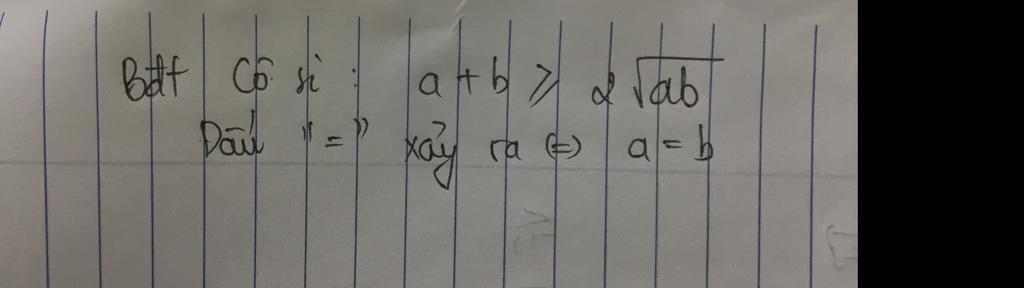 Bđt Cô si : a + b ≥ 2 √ab
Dấu "=" xảy ra (=) a = b